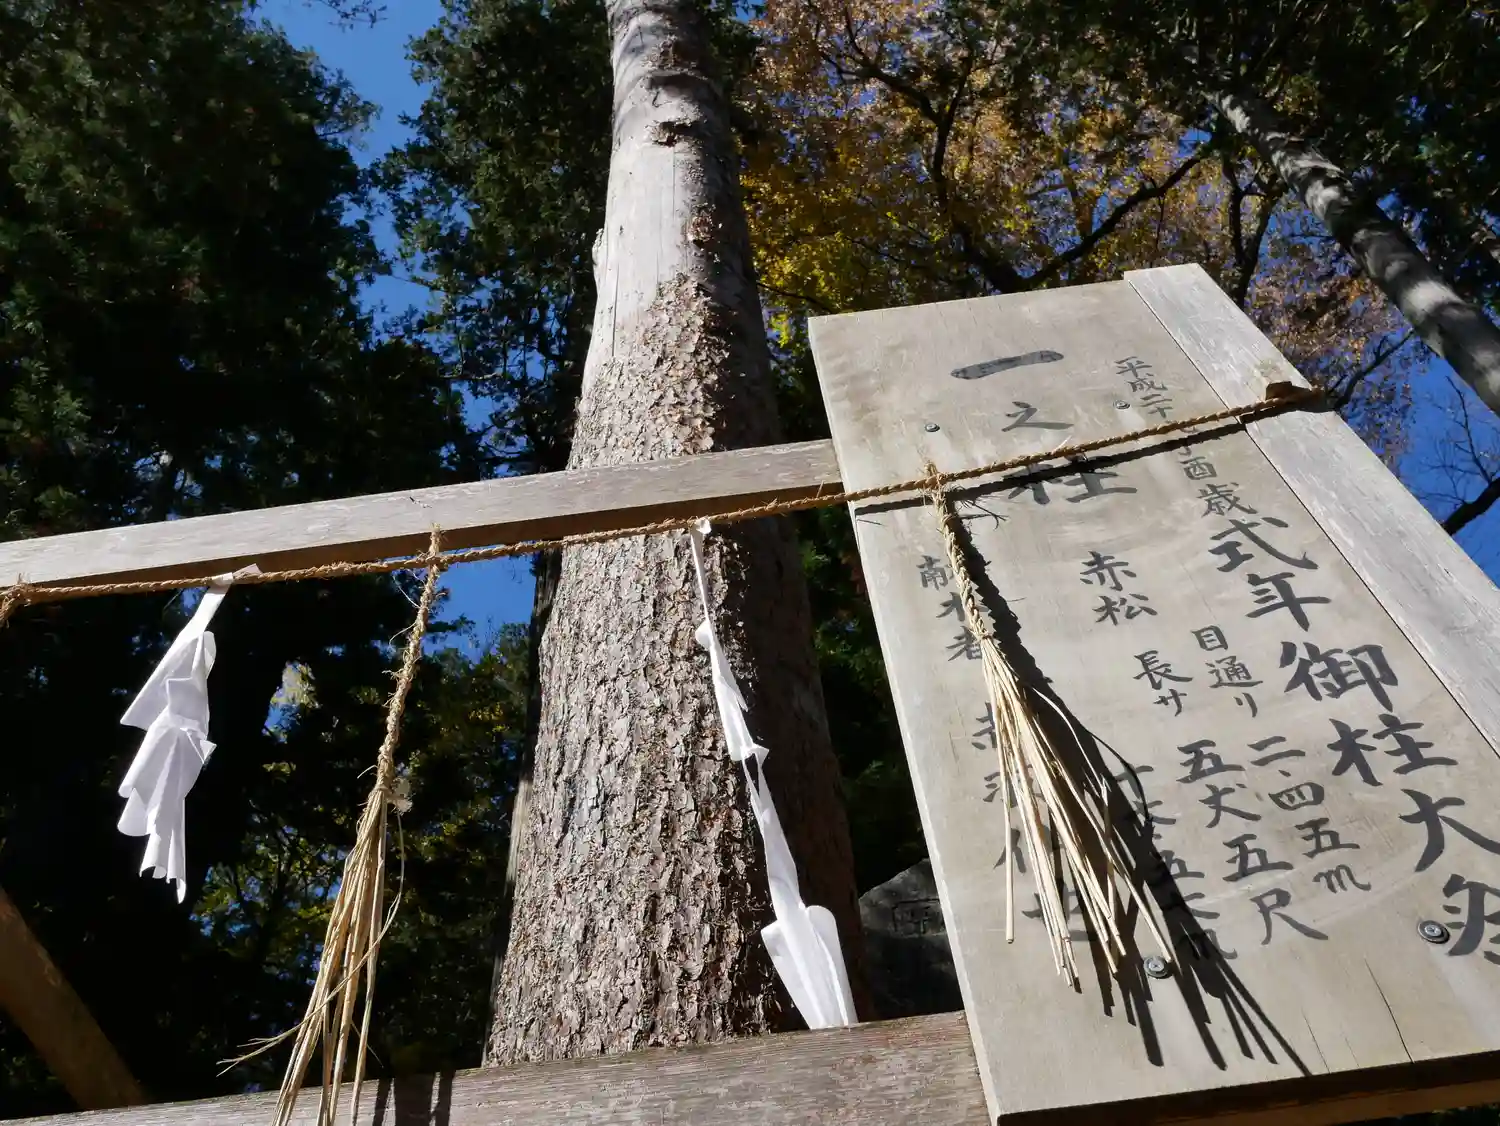 平成二十 酉歳式年御柱大祭
一之柱
目通り 二.四五m
赤松 長サ 五丈五尺
献木者 赤